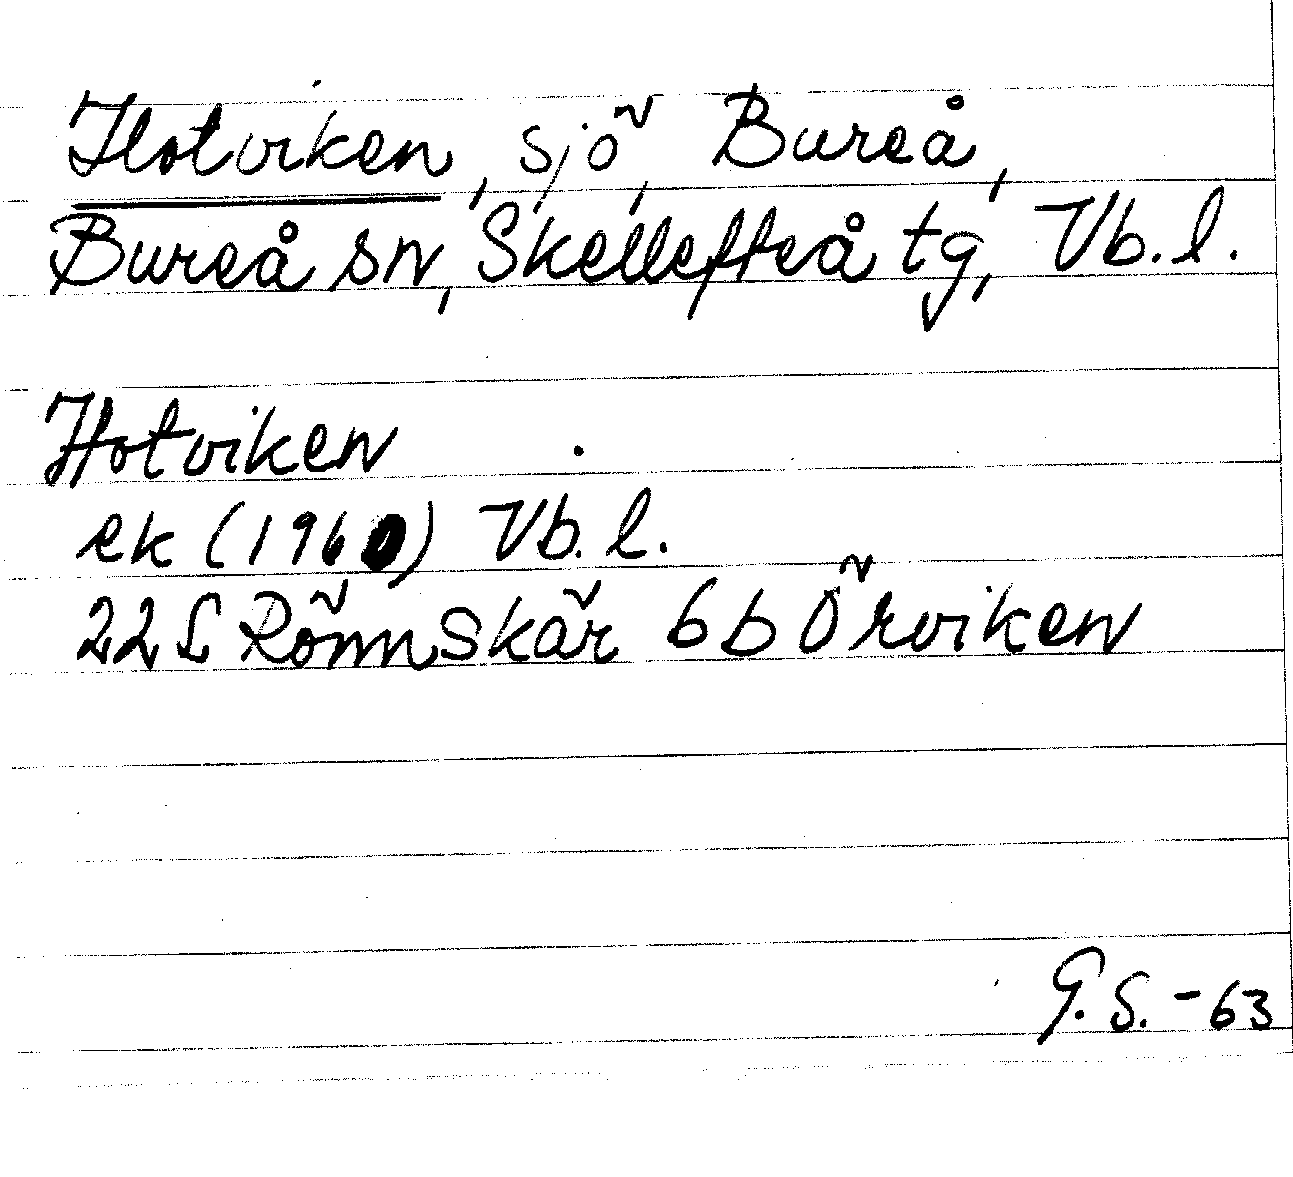 Hotviken, sjö, Bureå,
Bureå sn, Skellefteå tg, Vb.l.
Hotviken
ek (1960) Vb.l.
22L Rönnskär 6b Örviken
G.S. -63